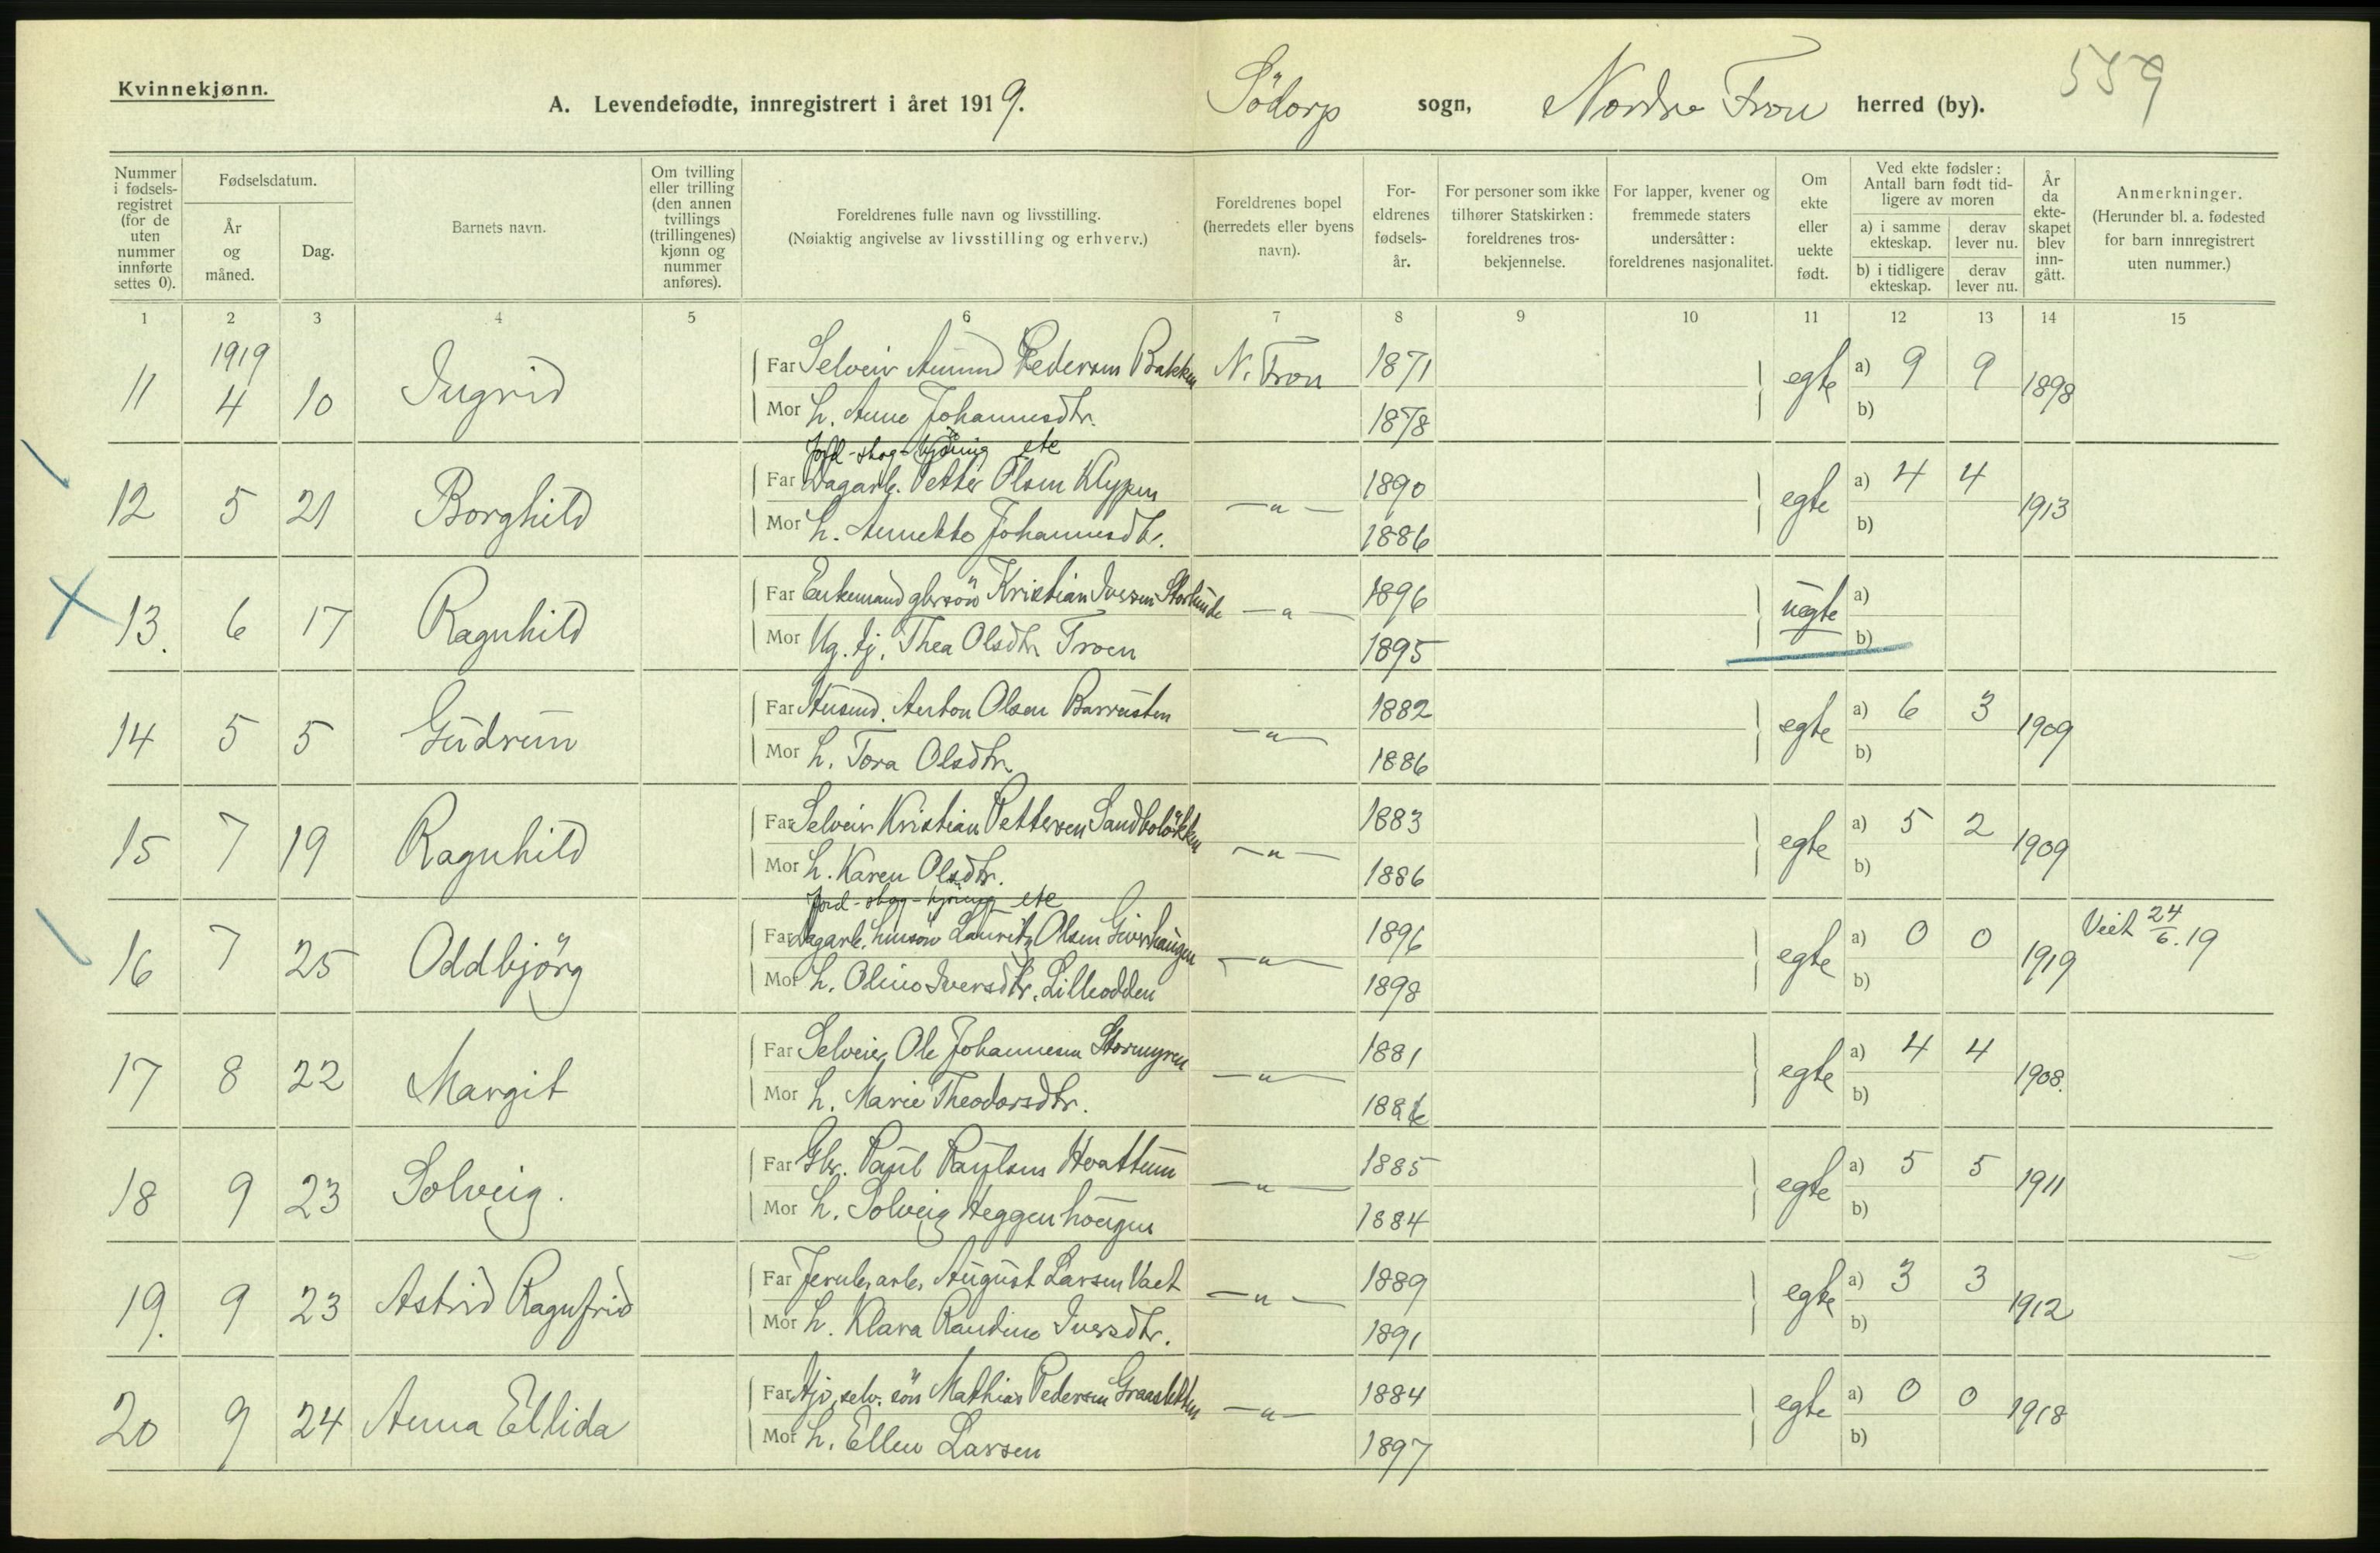 Kvinnekjønn.
A. Levendefødte, innregistrert i året 1919.
Södorp sogn, Nordre Fron herred (by).
559
Nummer i fødsels-registret (for de uten nummer innførte settes 0).
Fødselsdatum.
År og måned.
Dag.
Barnets navn.
Om tvilling eller trilling (den annen tvillings (trillingenes) kjønn og nummer anføres).
Foreldrenes fulle navn og livsstilling.
(Nøiaktig angivelse av livsstilling og erhverv.)
Foreldrenes bopel (herredets eller byens navn).
For-eldrenes fødsels-år.
For personer som ikke tilhører Statskirken: foreldrenes tros-bekjennelse.
For lapper, kvener og fremmede staters undersåtter: foreldrenes nasjonalitet.
Om ekte eller uekte født.
Ved ekte fødsler: Antall barn født tid-ligere av moren
a) i samme ekteskap.
derav lever nu.
b) i tidligere ekteskap.
derav lever nu.
År da ekte-skapet blev inn-gått.
Anmerkninger.
(Herunder bl. a. fødested for barn innregistrert uten nummer.)
1 2 3 4 5 6 7 8 9 10 11 12 13 14 15
1919
11 4 10 Ingrid Far Selveier Amund Pedersen Bakken N. Fron 1871 egte a) 9 9 1898
Mor h. Anne Johannesdtr. 1878 b)
Jord-skog-kjöring etc
12 5 21 Borghild Far Dagarb. Petter Olsen Klypen -"- 1890 egte a) 4 4 1913
Mor h. Annette Johannesdtr. 1886 b)
13. 6 17 Ragnhild Far Enkemand gbrsön Kristian Iversen -"- 1896 uegte a)
Mor Ug. tj. Thea Olsdtr. Troen 1895 b)
14 5 5 Gudrun Far Husmd. Anton Olsen -"- 1882 egte a) 6 3 1909
Mor h. Tora Olsdtr. 1886 b)
15 7 19 Ragnhild Far Selveier Kristian Pettersen Sandbolökken -"- 1883 egte a) 5 2 1909
Mor h. Karen Olsdtr. 1886 b)
Jord-skog-kjöring etc
16 7 25 Oddbjörg Far Dagarb. husm.sön Lauritz Olsen -"- 1896 egte a) 0 0 1919 Viet 24/6.19
Mor h. Oline Iversdtr. Lilleodden 1898 b)
17 8 22 Margit Far Selveier Ole Johannesen Stormyren -"- 1881 egte a) 4 4 1908.
Mor h. Marie Theodorsdtr. 1886 b)
18 9 23 Solveig. Far Gbr. Paul Paulsen Hvattum -"- 1885 egte a) 5 5 1911
Mor h. Solveig Heggenhougen 1884 b)
19. 9 23 Astrid Ragnfrid Far Jernb.arb. August Larsen -"- 1889 egte a) 3 3 1912
Mor h. Klara Randine Iversdtr. 1891 b)
20 9 24 Anna Ellida Far selv. sön Mathias Pedersen -"- 1884 egte a) 0 0 1918
Mor h. Ellen Larsen 1897 b)